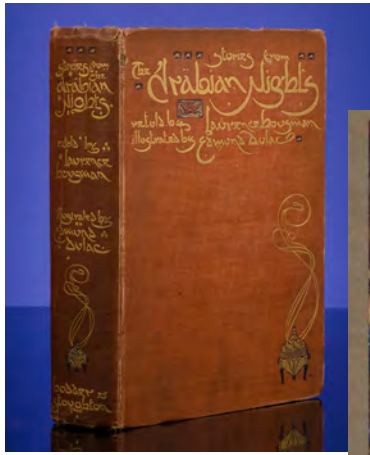 Stories from
the
Arabian
Nights.
retold by
Laurence
Housman
illustrated by
Edmund
Dulac.
Hodder &
Stoughton
Stories from
The Arabian Nights
retold by Laurence Housman
illustrated by Edmund Dulac